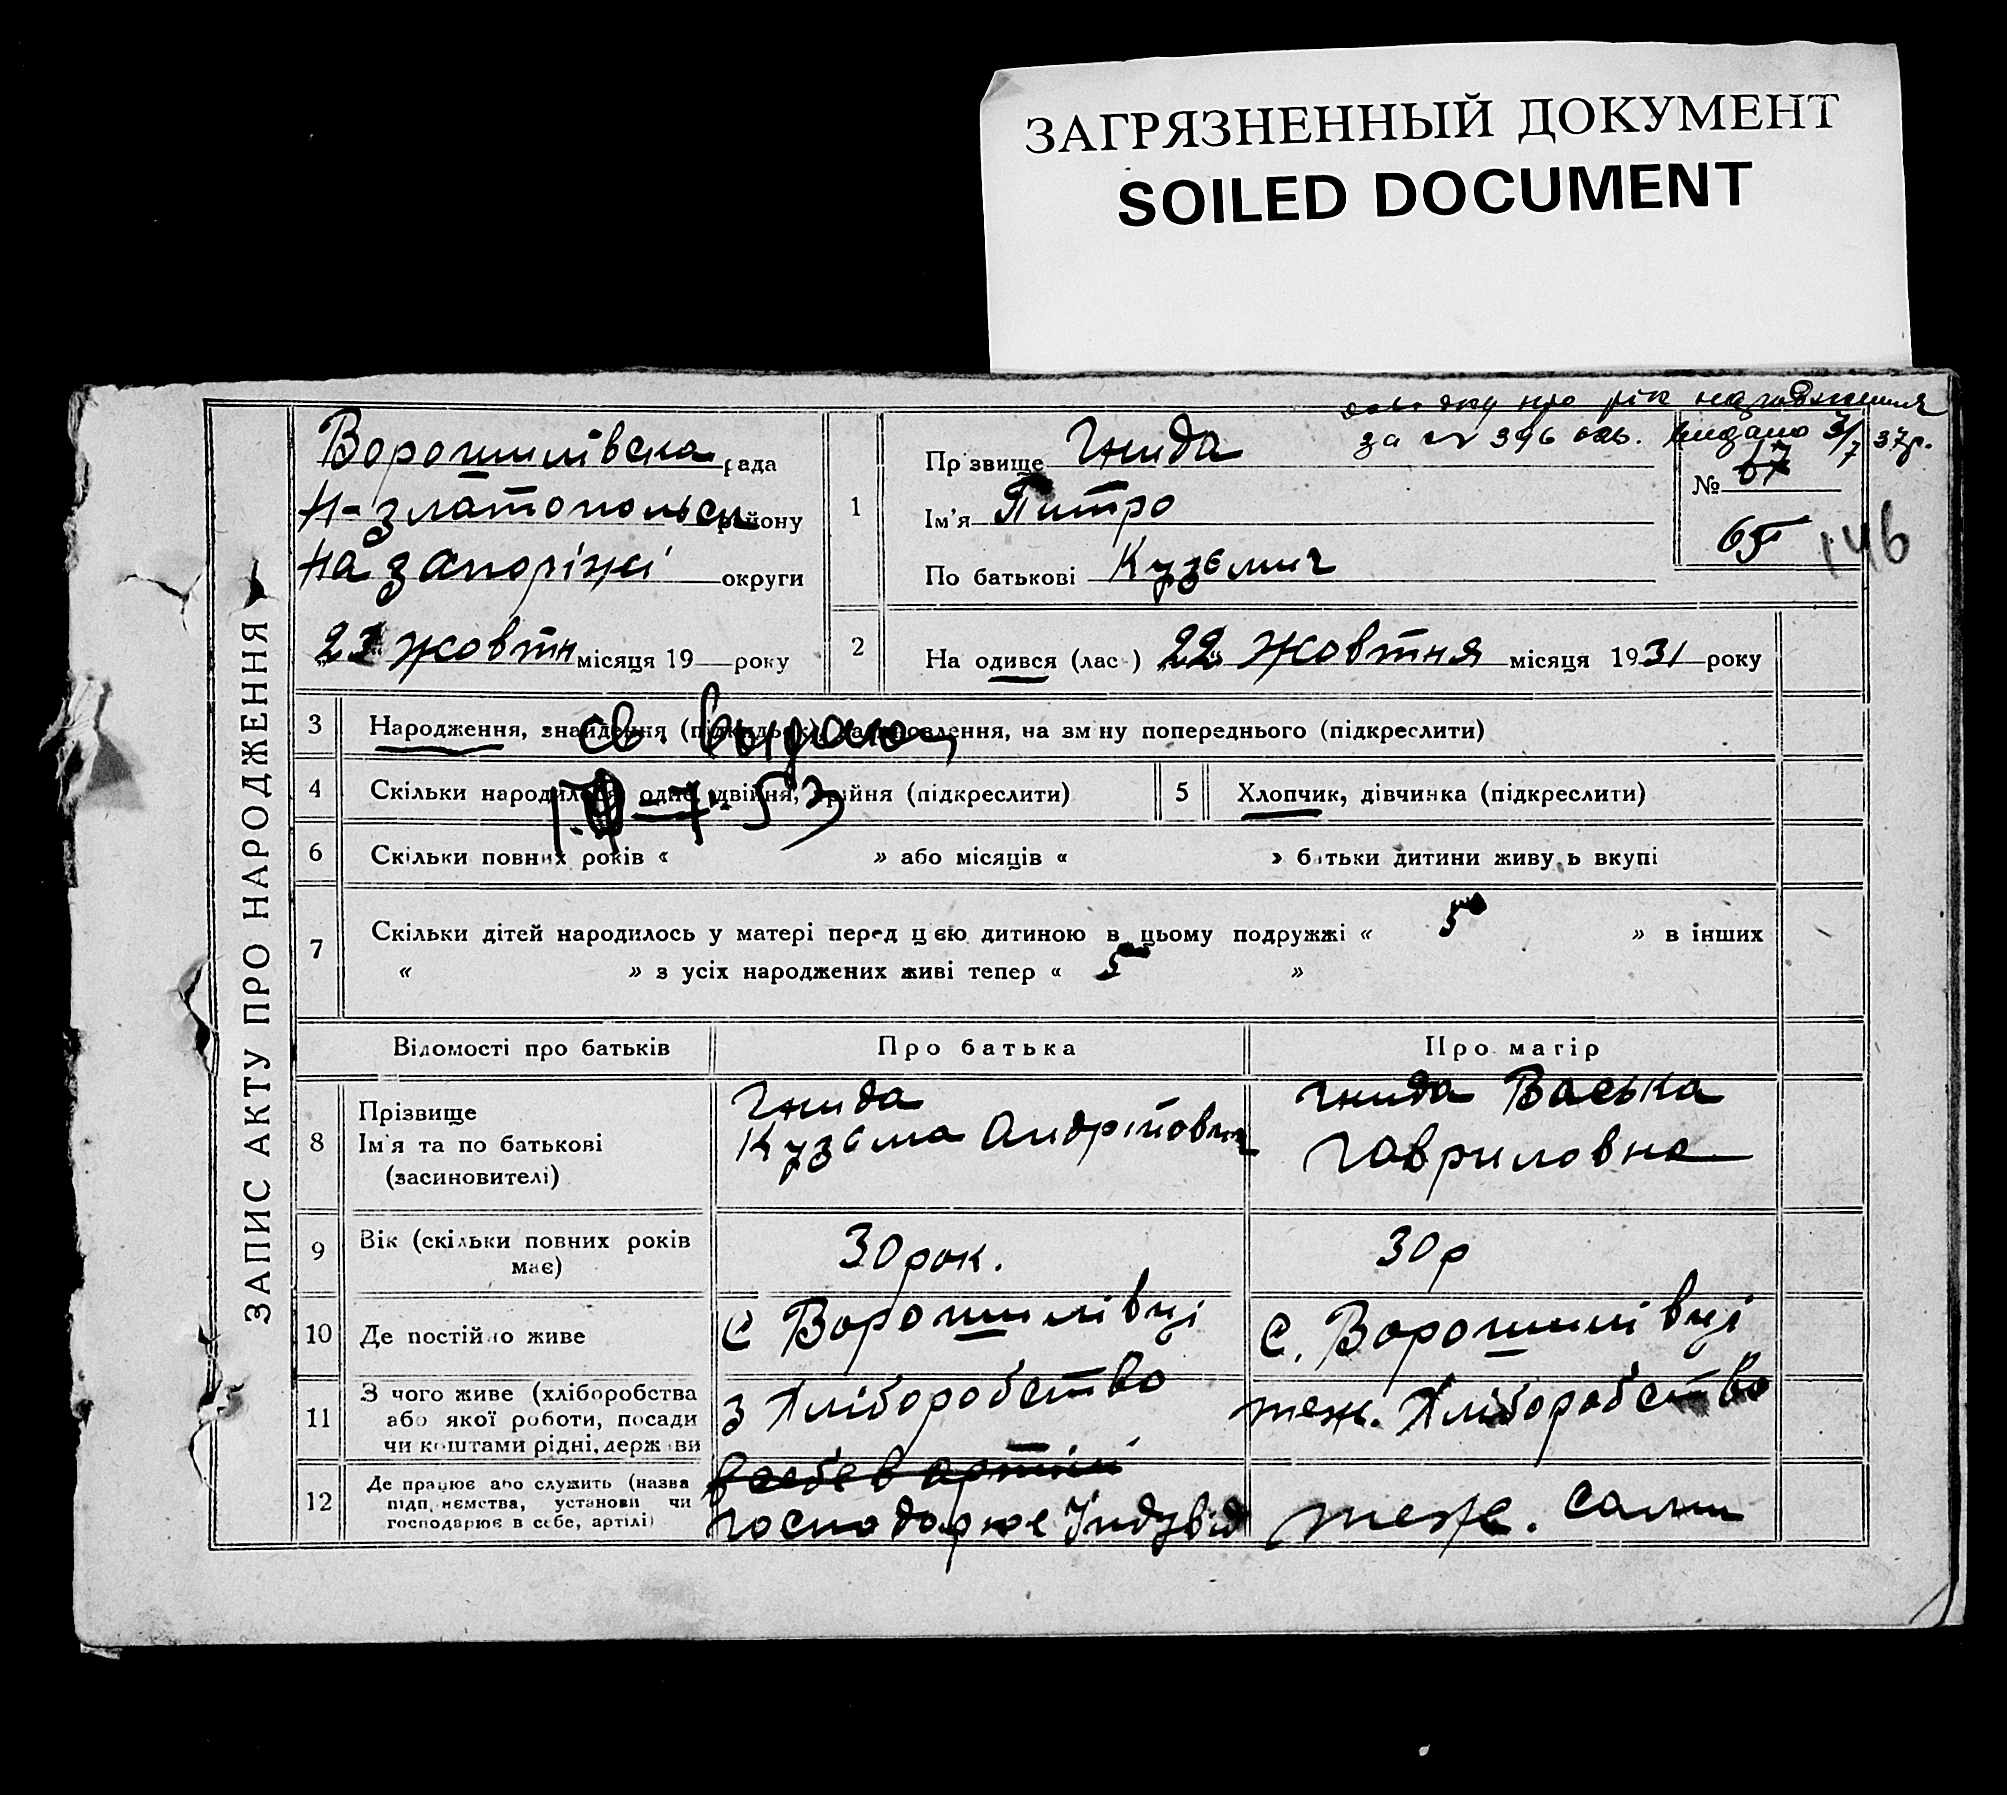 ЗАГРЯЗНЕННЫЙ ДОКУМЕНТ
SOILED DOCUMENT
про рік народження
за № 396 видано 3/7 37р.
ЗАПИС АКТУ ПРО НАРОДЖЕННЯ
Ворошилівська рада
Н-златопольськ району
На запоріжі округи
23 жовтн місяця 19 року
1
Прізвище Гнида
Ім'я Питро
По батькові Кузьмич
№ 67
65
146
2
На одився (лас ) 22 жовтня місяця 1931 року
3 Народження, знайдення св. выдано, на зміну попереднього (підкреслити)
4 Скільки народилося одне, двійня, трійня (підкреслити)
7-53
5 Хлопчик, дівчинка (підкреслити)
6 Скільки повних років « » або місяців « » батьки дитини живуть вкупі
7 Скільки дітей народилось у матері перед цією дитиною в цьому подружжі « 5 » в інших
« » з усіх народжених живі тепер « 5 »
Відомості про батьків Про батька Про матір
8 Прізвище
Ім'я та по батькові
(засиновителі)
Гнида
Кузьма Андрійович
Гнида Васька
Гавриловна
9 Вік (скільки повних років
має)
30 рок.
30 р
10 Де постійно живе
с Ворошилівці
с. Ворошилівці
11 З чого живе (хліборобства
або якої роботи, посади
чи коштами рідні, держави
З Хліборобство
теж. Хліборобство
12 Де працює або служить (назва
підприємства, установи чи
господарює в себе, артілі)
в себе в артілі
господарює Індувід
теж. сами